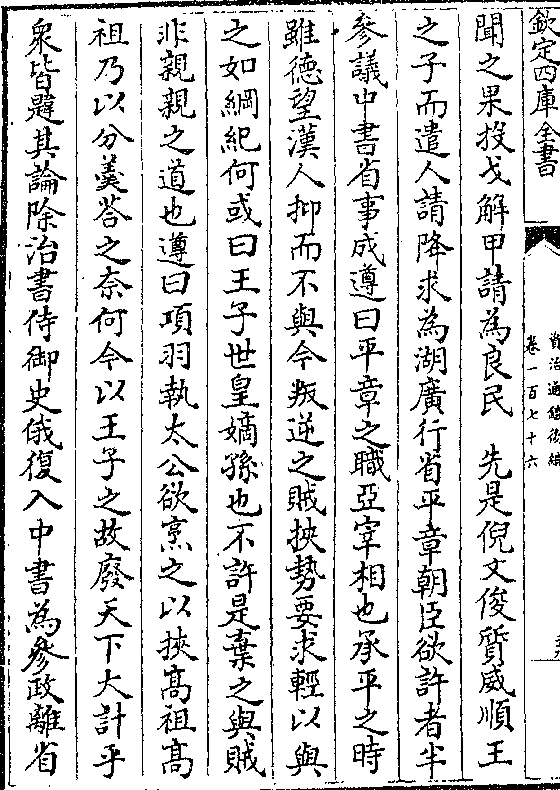 欽定四庫全書
資治通鑑後編
卷一百七十六
聞之果投戈解甲請為良民　先是倪文俊質威順王
之子而遣人請降求為湖廣行省平章朝臣欲許者半
參議中書省事成遵曰平章之職亞宰相也承平之時
雖德望漢人抑而不與今叛逆之賊挾勢要求輕以與
之如綱紀何或曰王子世皇嫡孫也不許是棄之與賊
非親親之道也遵曰項羽執太公欲烹之以挾高祖高
祖乃以分羹答之奈何今以王子之故廢天下大計乎
衆皆韙其論除治書侍御史俄復入中書為參政離省